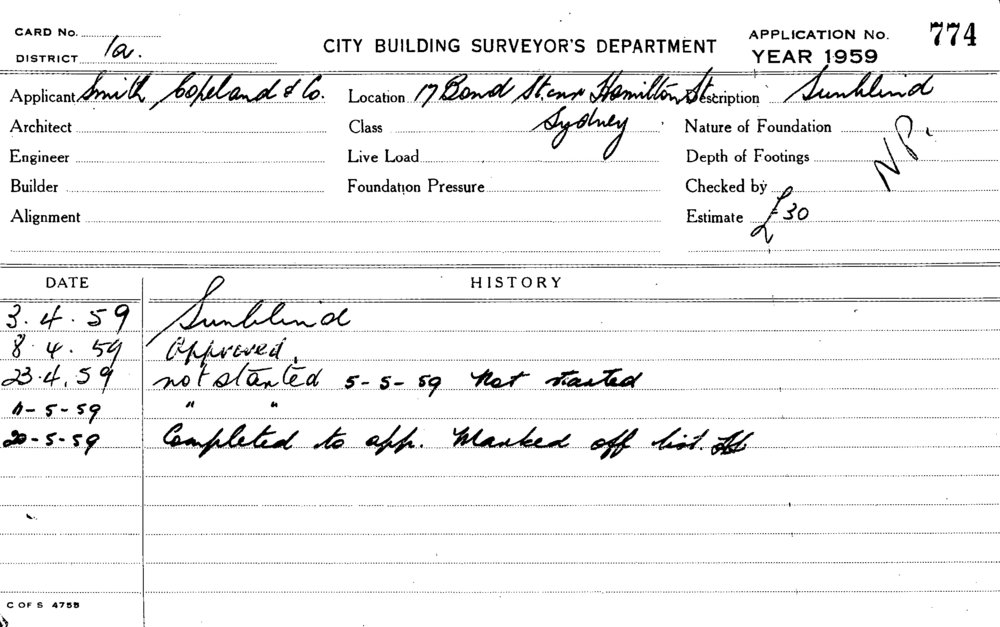 CARD No.
DISTRICT 1a.
CITY BUILDING SURVEYOR'S DEPARTMENT
APPLICATION No. 774
YEAR 1959
Applicant Smith, Copeland & Co. Location 17 Bond St. cnr Hamilton St. Description Sunblind
Architect Class Sydney Nature of Foundation
Engineer Live Load Depth of Footings N.P.
Builder Foundation Pressure Checked by
Alignment Estimate £30
DATE HISTORY
3.4.59 Sunblind
8.4.59 Approved.
23.4.59 not started 5-5-59 Not started
11-5-59 " "
20-5-59 Completed to app. Marked off list.
C OF S 475B